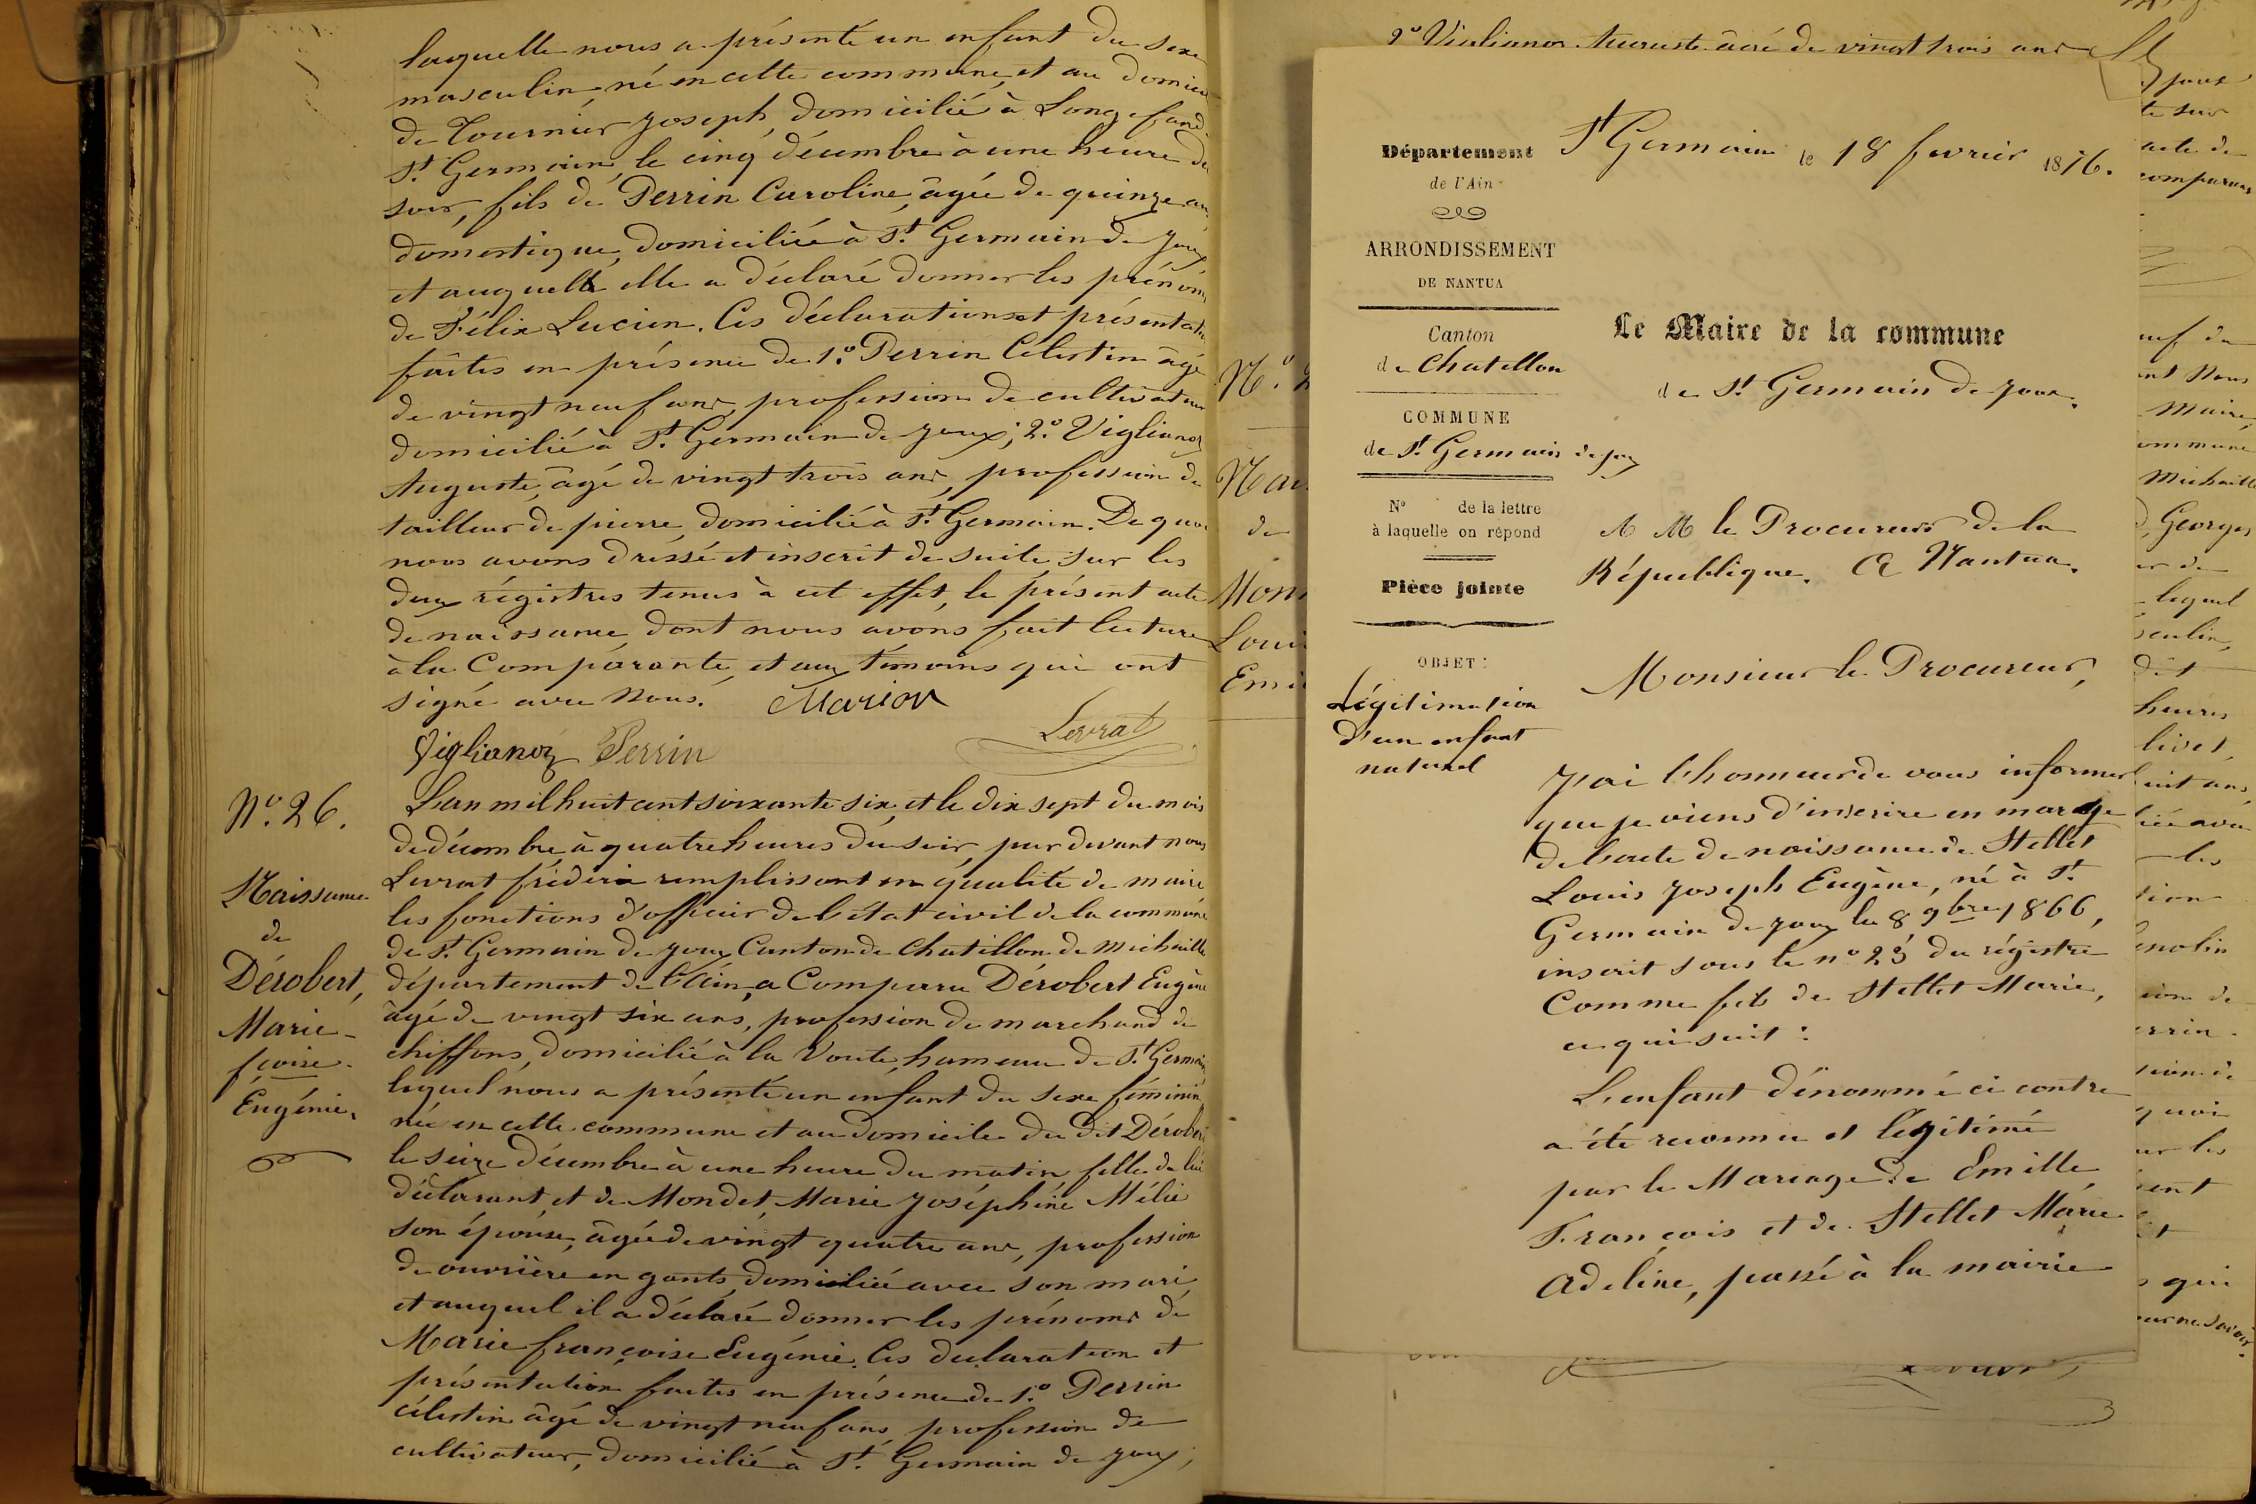 laquelle nous a présenté un enfant du sexe
masculin, né en cette commune, et au domici
de Tournier Joseph, domicilié à Longefand
St. Germain, le cinq décembre à une heure du
soir, fils de Perrin Caroline, âgée de quinze an
domestique, domiciliée à St. Germain de Joux
et auquel elle a déclaré donner les prénoms
de Félix Lucien. Ces déclarations et présentat
faites en présence de 1º. Perrin Célestin âgé
de vingt neuf ans, profession de cultivateur
domicilié à St. Germain de Joux; 2º. Viglianoz
Auguste, âgé de vingt trois ans, profession de
tailleur de pierre, domicilié à St. Germain. De quoi
nous avons dressé et inscrit de suite sur les
deux régistres tenus à cet effet, le présent acte
de naissance, dont nous avons fait lecture
à la Comparante, et aux témoins qui ont
signé avec nous. Marion
Levrat
Viglianoz Perrin
Nº. 26.
Naissance
de
Dérobert,
Marie
fçoise
Eugénie.
L'an mil huit cent soixante six, et le dix sept du mois
de décembre à quatre heures du soir, par devant nous
Levrat fréderic remplissant en qualité de maire
les fonctions d'officier de l'état civil de la commune
de St. Germain de Joux Canton de Chatillon de Michaille
département de l'Ain, a Comparu Dérobert Eugène
âgé de vingt six ans, profession de marchand de
chiffons, domicilié à la Voute, hameau de St. Germain
lequel nous a présenté un enfant du sexe féminin
née en cette commune et au domicile du dit Dérobert
le seize décembre à une heure du matin, fille de lui
déclarant, et de Mondet, Marie Joséphine Mélie
son épouse, âgée de vingt quatre ans, profession
de ouvrière en gants, domiciliée avec son mari,
et auquel il a déclaré donner les prénoms de
Marie françoise Eugénie. Ces declaration et
présentation faites en présence de 1º. Perrin
célestin âgé de vingt neuf ans, profession de
cultivateur, domicilié à St. Germain de Joux;
2º Viglianoz Auguste âgé de vingt trois ans
Nº.
Nai
de
Mon
Loui
Emi
Département
de l'Ain
ARRONDISSEMENT
DE NANTUA
Canton
de Chatillon
COMMUNE
de St. Germain de Joux
Nº de la lettre
à laquelle on répond
Pièce jointe
OBJET:
Légitimation
d'un enfant
naturel
St Germain le 18 fevrier 1876.
Le Maire de la commune
de St. Germain de Joux.
A M le Procureur de la
République. A Nantua.
Monsieur le Procureur,
J'ai l'honneur de vous informer
que je viens d'inscrire en marge
de l'acte de naissance de Stellet
Louis Joseph Eugène, né à St.
Germain de Joux le 8 9bre 1866,
inscrit sous le nº 23 du régistre
Comme fils de Stellet Marie,
ce qui suit:
L'enfant dénommé ci contre
a été reconnu et légitimé
par le Mariage de Emille
François et de Stellet Marie
Adeline, passé à la mairie
te sur
acte de
comparant
euf du
ant Nous
Maire,
ommune
Michaille
Georges
er de
lequel
culin,
dit
heures
livet,
uit ans,
iée avec
les
tion
enolin
ion de
errin
sion de
quoi
ur les
sent
et
qui